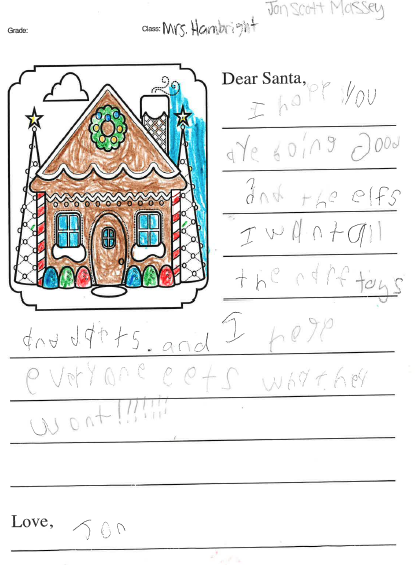 Jon Scott Massey
Grade: Class: Mrs. Hambright
Dear Santa,
I hope you
are boing good
and the elfs
I want all
the nerf toys
and darts. and I hope
everyone eets whathey
wont!!!!!!!
Love, Jon